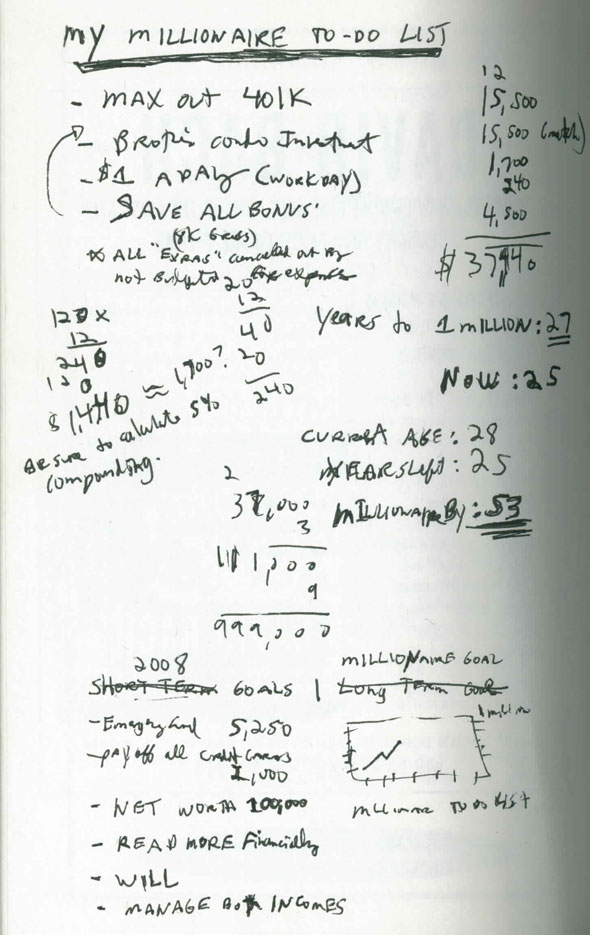 MY MILLIONAIRE TO-DO LIST
- MAX OUT 401K
- condo Investment
- $1 A DAY (WORKDAY)
- SAVE ALL BONUS'
(8K Gross)
* ALL "EXTRAS" canceled out by
not budgeted expenses
12
15,500
15,500 (match)
1,700
240
4,500
$37,440
120 x
12
240
120
$1,440 ≈ 1,700?
Be sure to calculate 5%
compounding.
20
12
40
20
240
Years to 1 million: 27
Now: 25
CURRENT AGE: 28
YEARS left: 25
MILLIONAIRE By: 53
2
37,000
3
111,000
9
999,000
2008
SHORT TERM GOALS | Long Term Goal
MILLIONAIRE GOAL
- Emergency fund 5,250
- pay off all credit cards
1,000
- NET WORTH 100,000
- READ MORE Financially
- WILL
- MANAGE BOTH INCOMES
1 million
MILLIONAIRE TO DO LIST